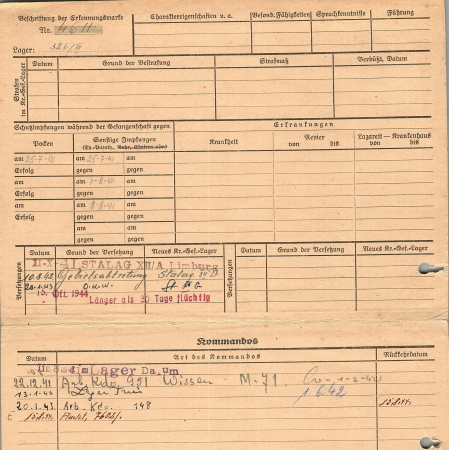 Beschriftung der Erkennungsmarke
Nr. 4611
Lager: 326/
Charaktereigenschaften u. a.
Besond. Fähigkeiten
Sprachkenntnisse
Führung
Strafen im Kr.-Gef.-Lager
Datum
Grund der Bestrafung
Strafmaß
Verbüßt, Datum
Schutzimpfungen während der Gefangenschaft gegen
Erkrankungen
Pocken
Sonstige Impfungen
Krankheit
Revier
von bis
Lazarett – Krankenhaus
von bis
am 25-7-41 am 25-7-41 am
Erfolg gegen gegen
am am 1-8-41 am
Erfolg gegen gegen
am am 8-8-41 am
Erfolg gegen gegen
am am
gegen gegen
Versetzungen
Datum
Grund der Versetzung
Neues Kr.-Gef.-Lager
Versetzungen
Datum
Grund der Versetzung
Neues Kr.-Gef.-Lager
STALAG XII/A Limburg
10.8.42. Gebietsabtretung Stalag
20.1.43 O.K.W.
15. Okt. 1944 Länger als 30 Tage flüchtig
Kommandos
Datum
Art des Kommandos
Rückkehrdatum
Lager Daaum
22.12.41 Arb. Kdo. 921 Wissen - M-71.
1.6.42
13.1.43
20.1.43. Arb. Kdo. 148 15.8.44.
15.8.44. Flucht.